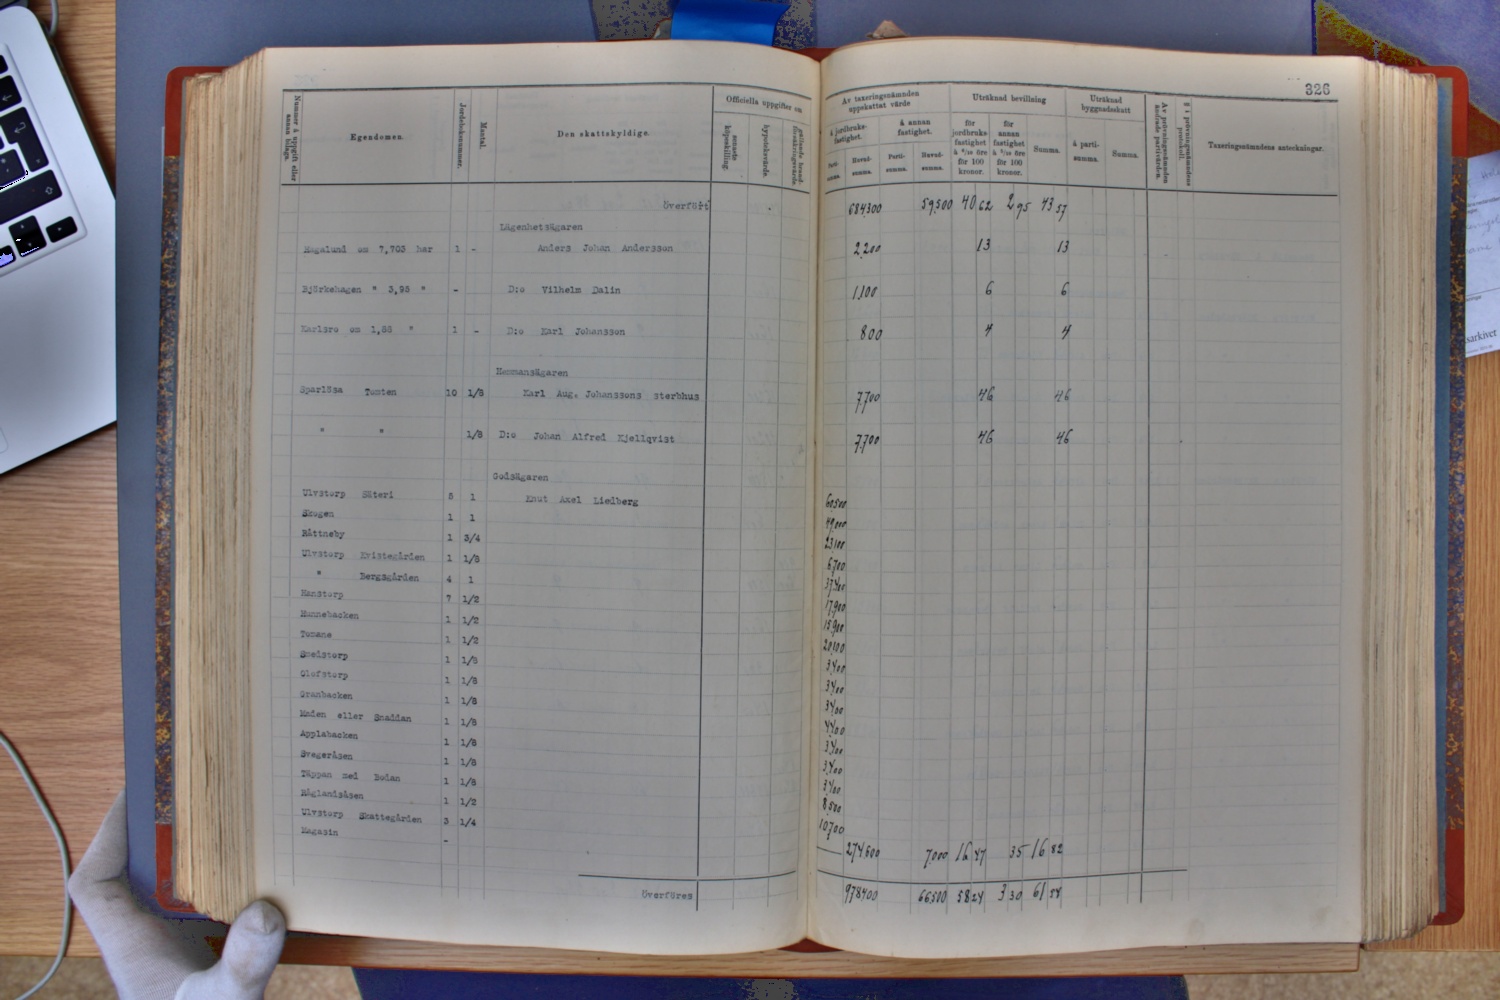 326
Nummer å uppgift eller annan bilaga.
Egendomen.
Jordeboksnummer.
Mantal.
Den skattskyldige.
Officiella uppgifter om
senaste köpeskilling.
hypoteksvärde.
gällande brandförsäkringsvärde.
Av taxeringsnämnden uppskattat värde
å jordbruksfastighet.
å annan fastighet.
Parti-summa.
Huvud-summa.
Parti-summa.
Huvud-summa.
Uträknad bevillning
för jordbruksfastighet à 6/10 öre för 100 kronor.
för annan fastighet à 5/10 öre för 100 kronor.
Summa.
Uträknad byggnadsskatt
å parti-summa.
Summa.
Av prövningsnämnden
Taxeringsnämndens anteckningar.
Överfört 684300 59,500 40 62 2 95 43 57
Lägenhetsägaren
Hagalund om 7,703 har 1 - Anders Johan Andersson 2,200 13 13
Björkehagen " 3,95 " - D:o Vilhelm Dalin 1,100 6 6
Karlsro om 1,86 " 1 - D:o Karl Johansson 800 4 4
Hemmansägaren
Sparlösa Tomten 10 1/8 Karl Aug. Johanssons sterbhus 7,700 46 46
" " 1/8 D:o Johan Alfred Kjellqvist 7,700 46 46
Godsägaren
Ulvstorp Säteri 5 1 Knut Axel Lidlberg 60,500
Skogen 1 1 49,000
Råttneby 1 3/4 23,100
Ulvstorp Kvistegården 1 1/8 6,700
" Bergsgården 4 1 37,400
Hanstorp 7 1/2 17,900
Munnebacken 1 1/2 15,900
Tomane 1 1/2 20,100
Smedstorp 1 1/8 3,400
Olofstorp 1 1/8 3,400
Granbacken 1 1/8 3,400
Maden eller Snaddan 1 1/8 4,400
Applabacken 1 1/8 3,400
Svageråsen 1 1/8 3,400
Täppan med Bodan 1 1/8 3,400
Råglandsåsen 1 1/2 8,500
Ulvstorp Skattegården 3 1/4 10,700
Magasin -
274,600 7,000 16 47 35 16 82
Överföres 978400 66500 58 24 3 30 61 54